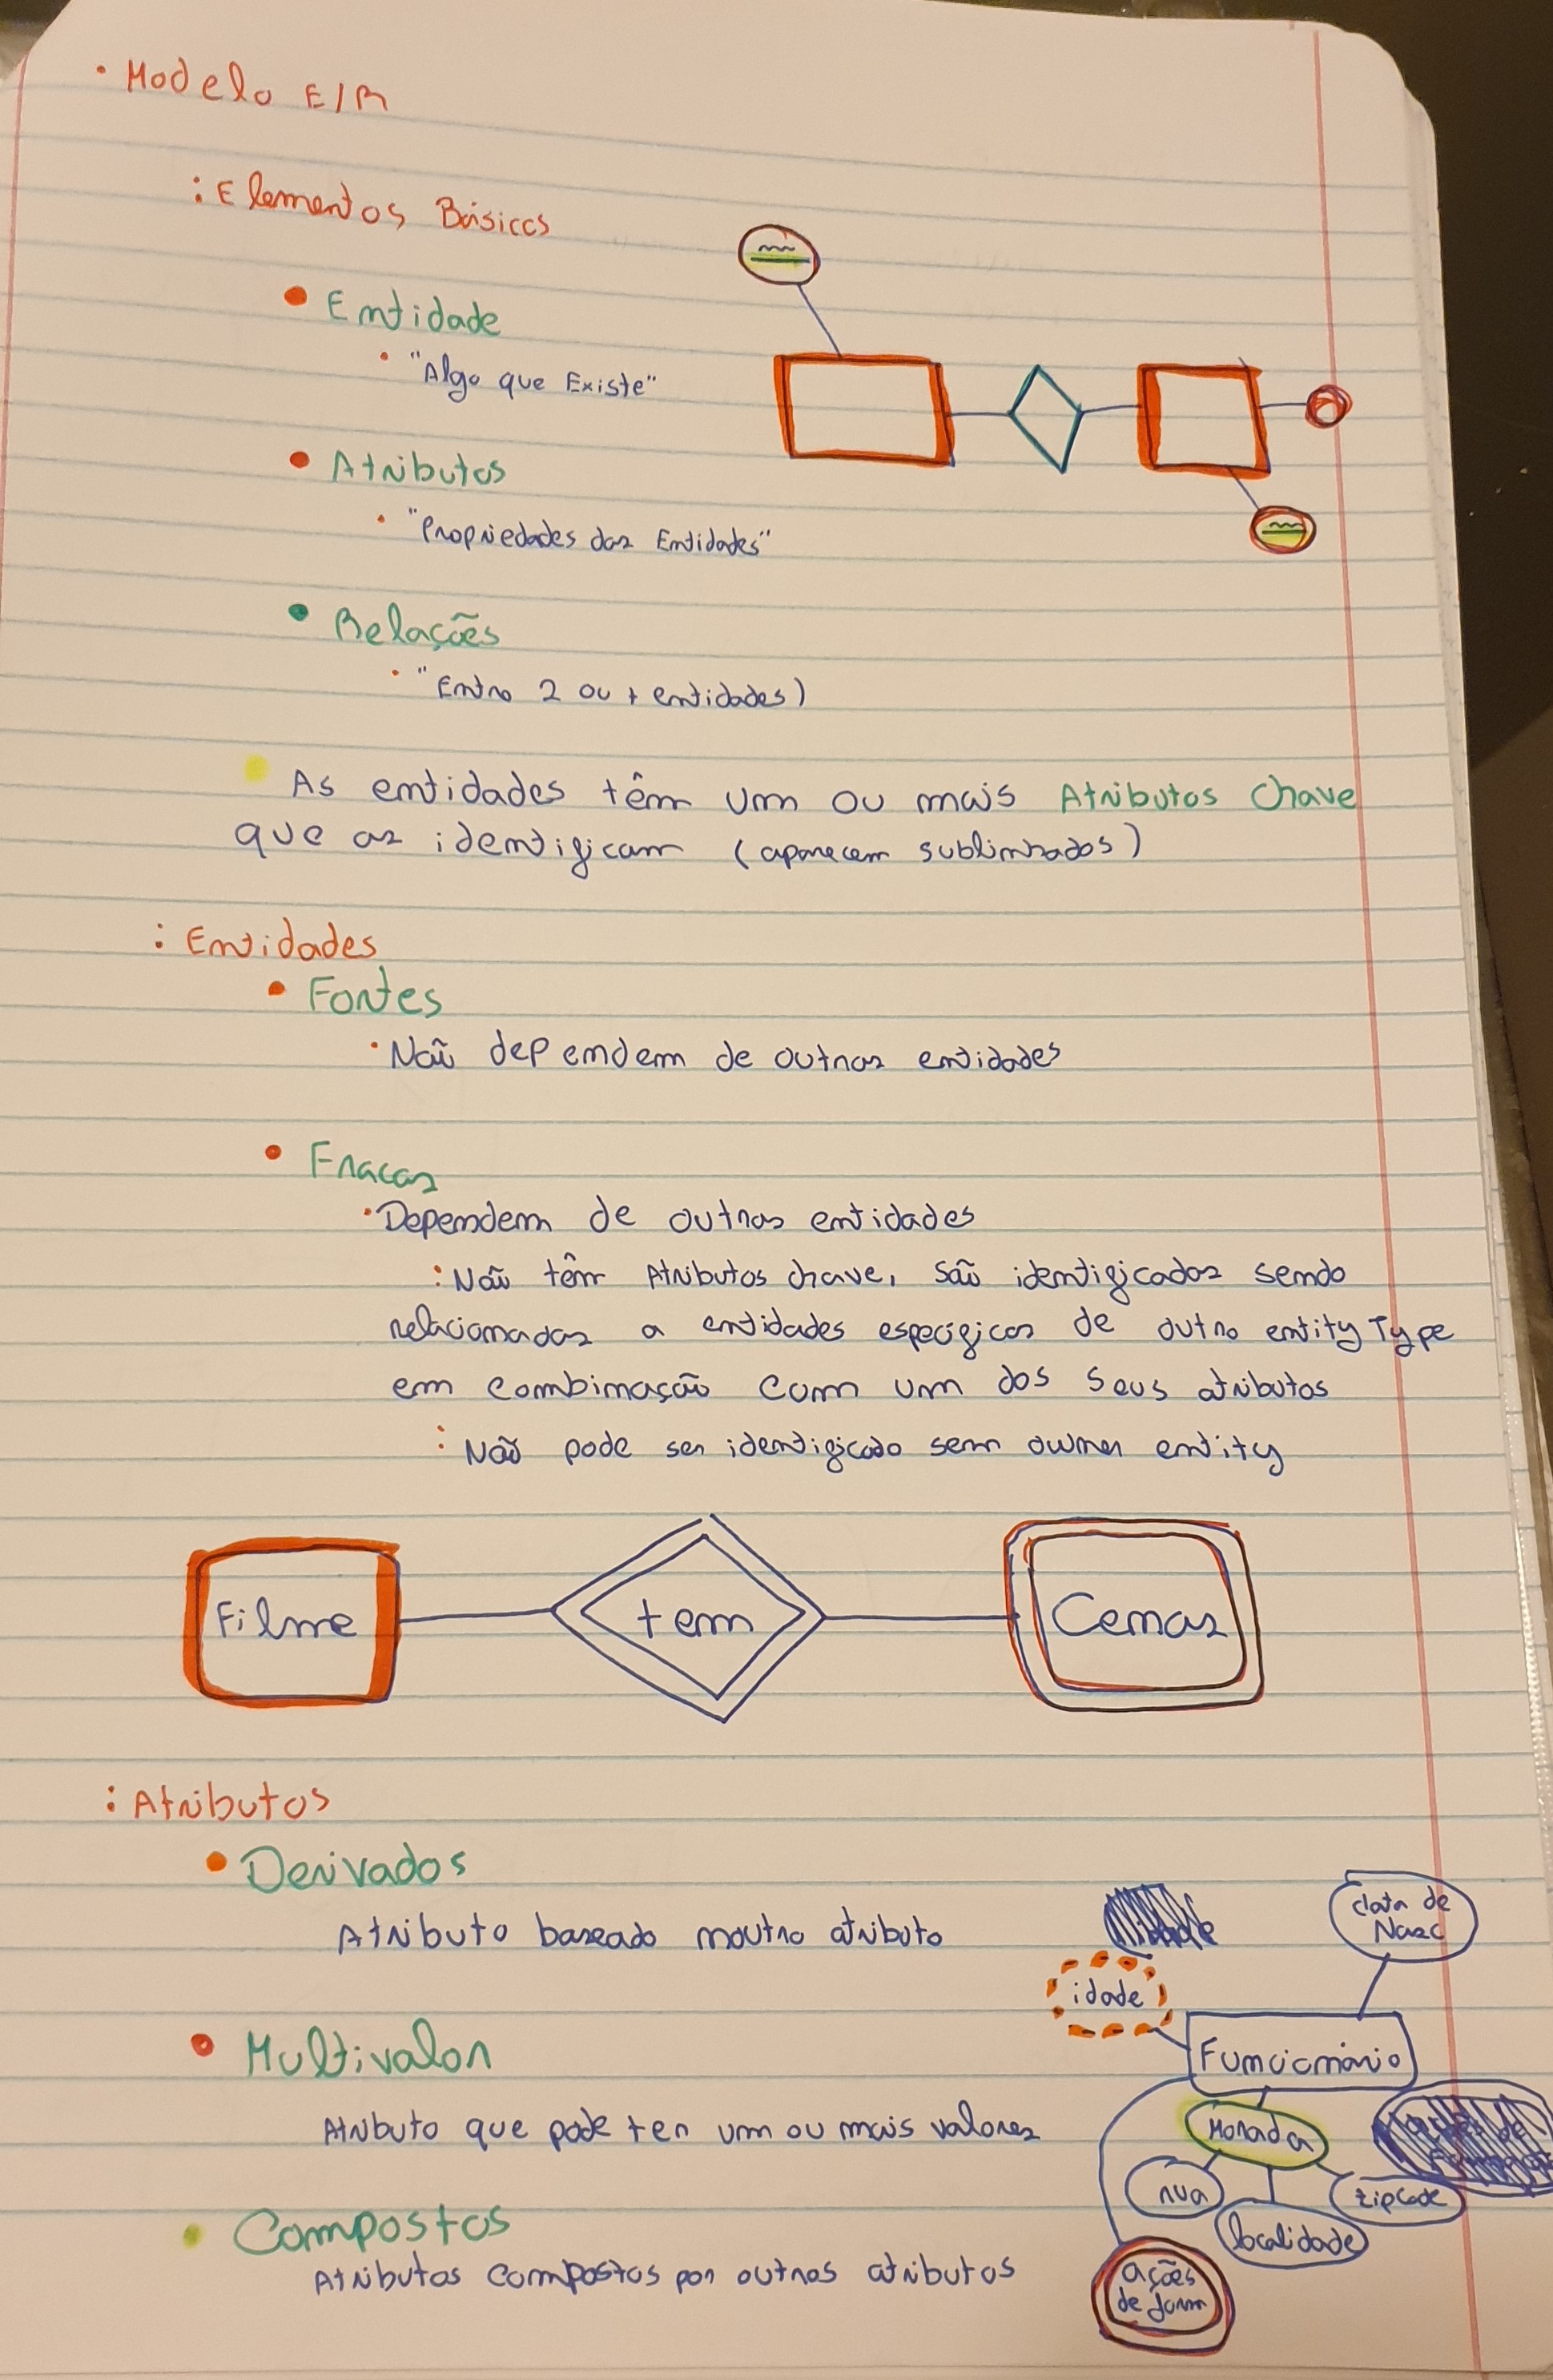 Modelo E/R
: Elementos Básicos
Entidade
"Algo que Existe"
Atributos
"Propriedades das Entidades"
Relações
"Entre 2 ou + entidades)
As entidades têm um ou mais Atributos Chave
que as identificam (aparecem sublinhados)
: Entidades
Fortes
Não dependem de outras entidades
Fracas
Dependem de outras entidades
: Não têm Atributos chave, são identificados sendo
relacionadas a entidades específicas de outro entity Type
em combinação com um dos seus atributos
: Não pode ser identificado sem owner entity
Filme
tem
Cenas
: Atributos
Derivados
Atributo baseado noutro atributo
data de
Nasc
idade
Funcionário
Multivalor
Atributo que pode ter um ou mais valores
Morada
rua
localidade
zipcode
Compostos
Atributos compostos por outros atributos
Ações
de form